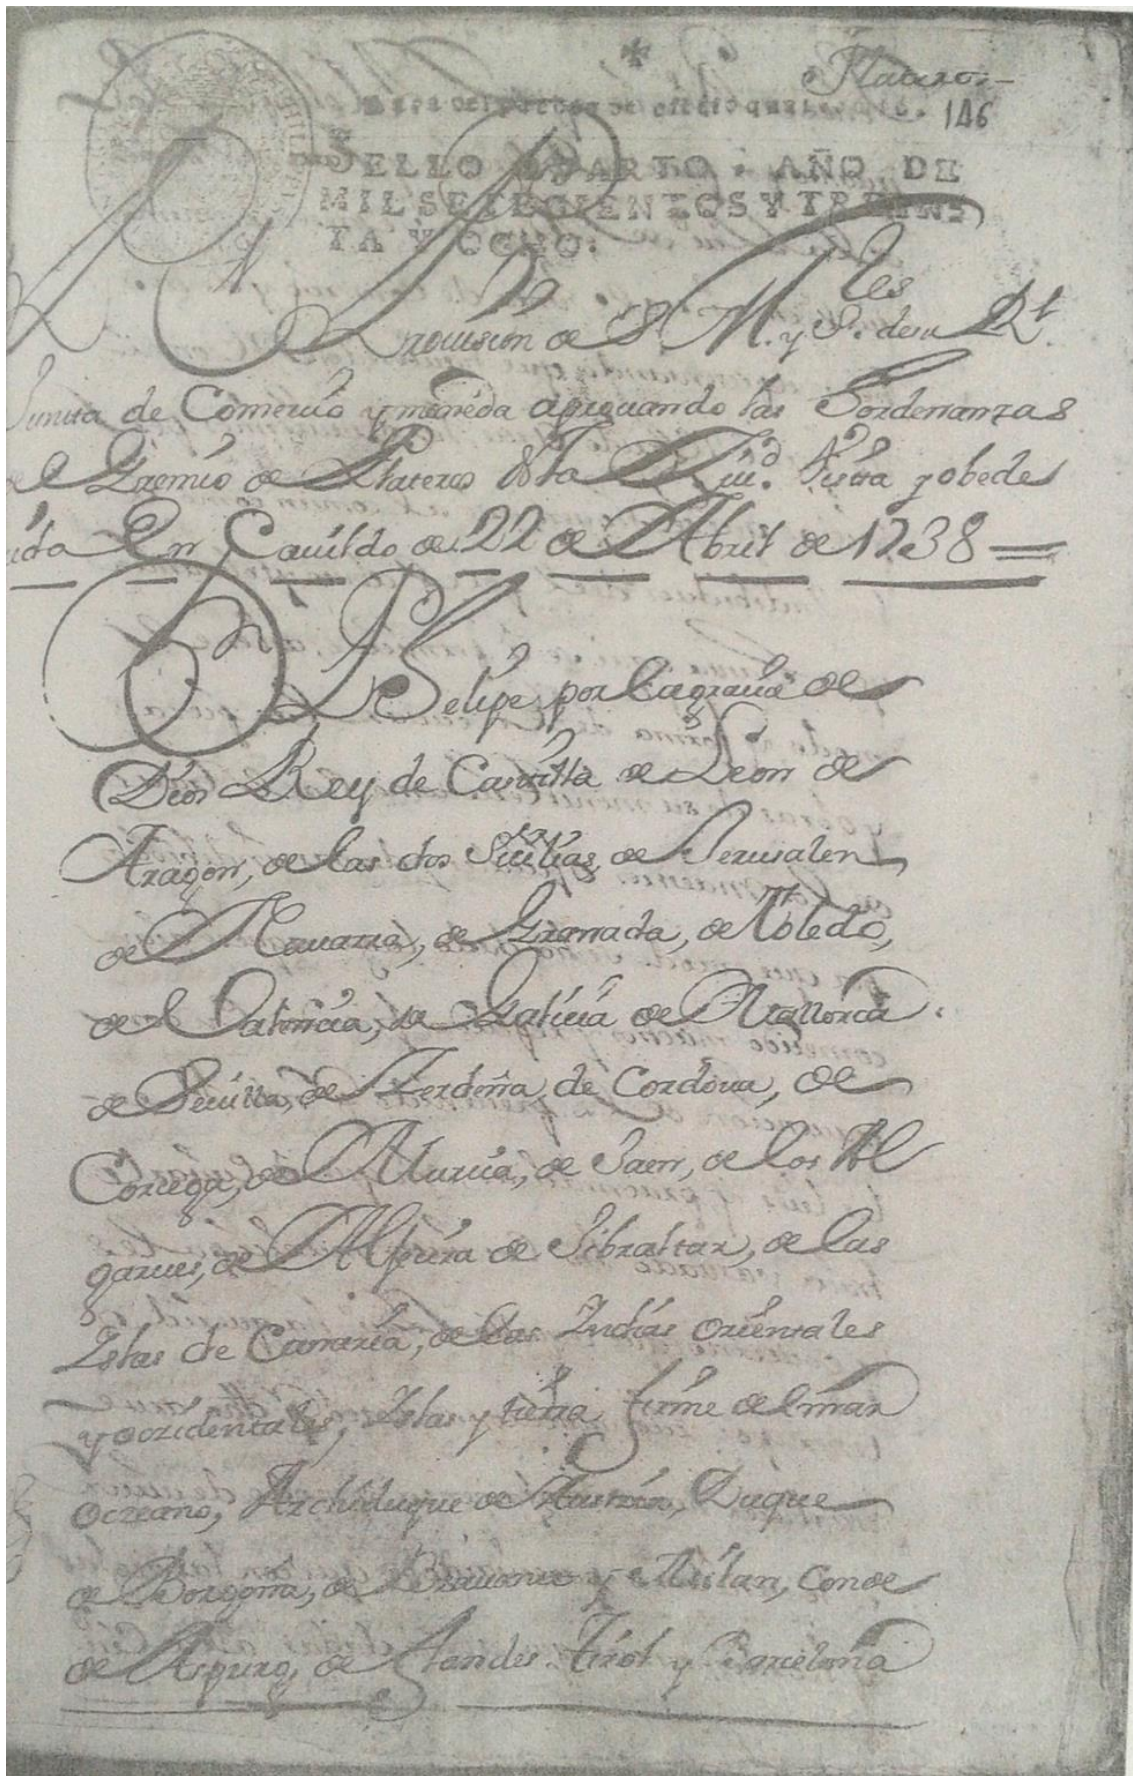 Plateros
146
para despachos de oficio quatro mrs.
SELLO QVARTO, AÑO DE
MIL SETECIENTOS Y TREIN-
TA Y OCHO.
Provision de S. M. y S.res de su Rl
Junta de Comercio y moneda aprouando las Hordenanzas
de el Gremio de Plateros de esta Ziud. Vista y obede
cida En Cauildo de 22 de Abril de 1738
Dn Phelipe por la gracia de
Dios Rey de Castilla de Leon de
Aragon, de las dos Sicilias, de Jerusalen
de Nauarra, de Granada, de Toledo,
de Valencia, de Galicia de Mallorca
de Seuilla, de Zerdeña, de Cordoua, de
Corzega, de Murcia, de Jaen, de los Al
garues, de Algecira de Gibraltar, de las
Islas de Canaria, de las Indias orientales
y occidentales, Islas y tierra firme de el mar
oczeano, Archiduque de Austria, Duque
de Borgoña, de Brauante y Milan, Conde
de Aspurg, de Flandes Tirol y Barcelona